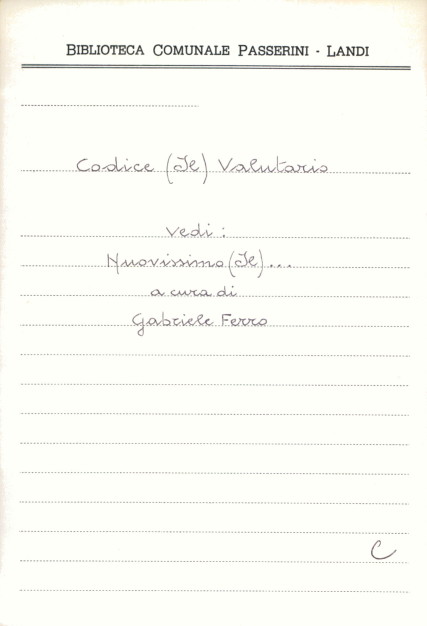 BIBLIOTECA COMUNALE PASSERINI - LANDI
Codice (Il) Valutario
Vedi:
Nuovissimo (Il)...
a cura di
Gabriele Ferro
C